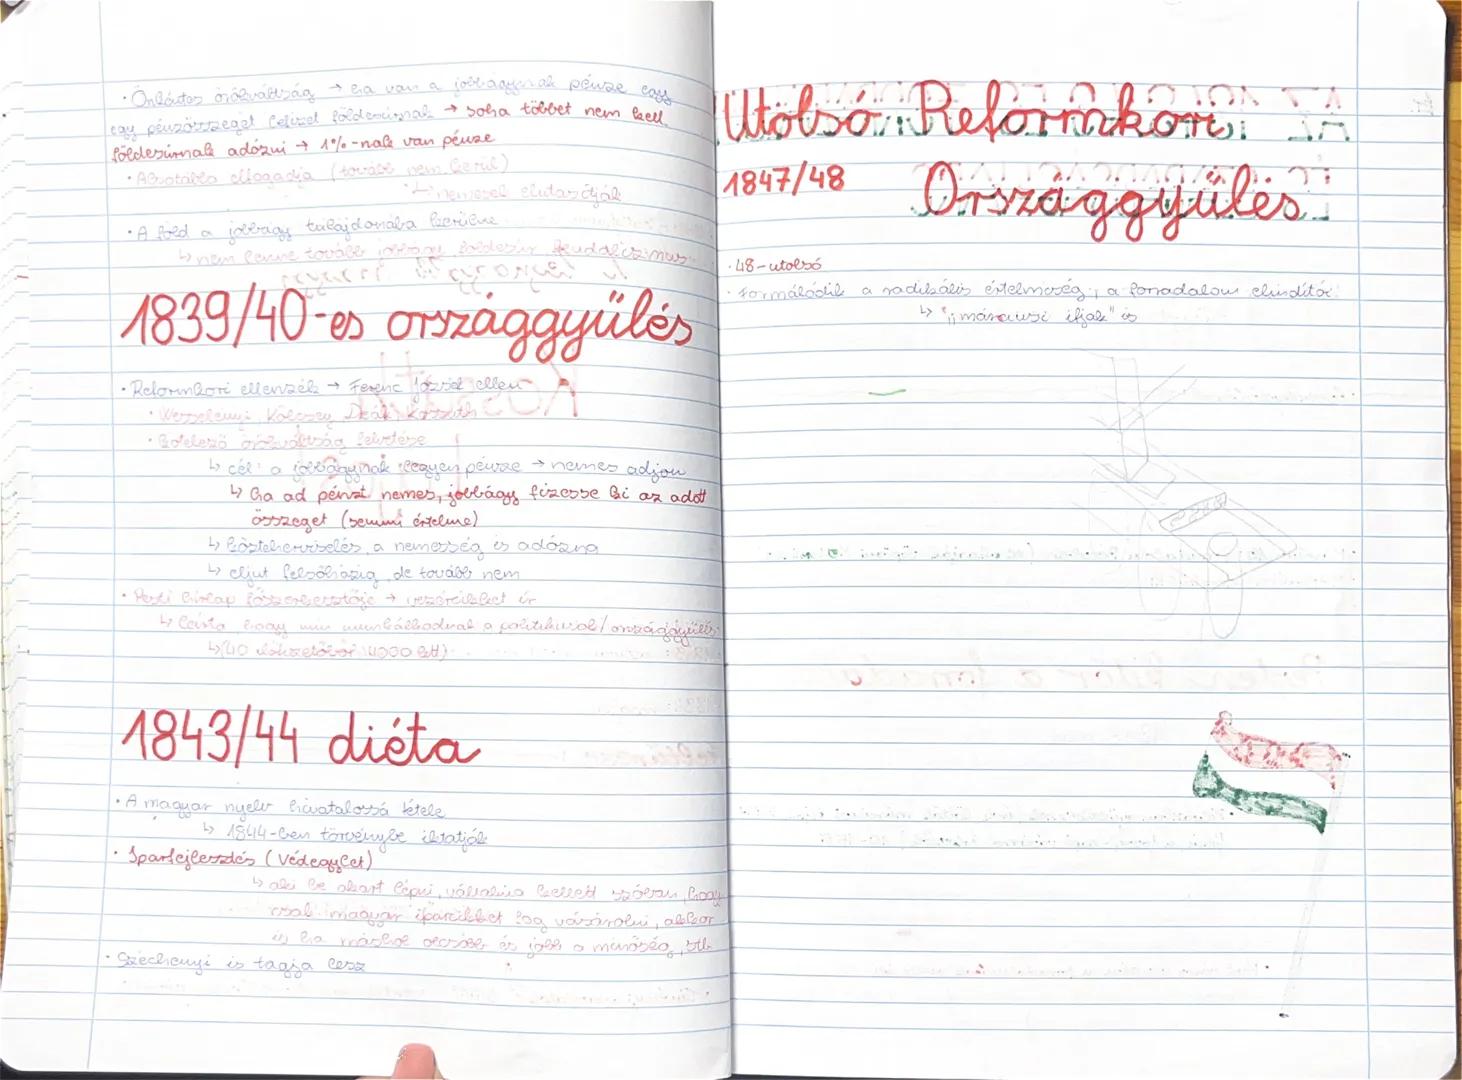 · Önkéntes örökváltság → ha van a jobbágynak pénze egy
egy pénzösszeget lefizet földesúrnak → soha többet nem kell
földesúrnak adózni → 1%-nak van pénze
· Alsótábla elfogadja (tovább nem kerül)
↳ nemesek elutasítják
· A föld a jobbágy tulajdonába kerülne
↳ nem lenne tovább jobbágy, földesúr feudalizmus
1839/40-es országgyűlés
· Reformkori ellenzék → Ferenc József ellen
· Wesselényi, Kölcsey, Deák, Kossuth
· Kötelező örökváltság felvetése
↳ cél: a jobbágynak legyen pénze → nemes adjon
↳ ha ad pénzt nemes, jobbágy fizesse ki az adott
összeget (semmi értelme)
↳ közteherviselés, a nemesség is adózna
↳ eljut felsőházig, de tovább nem
· Pesti Hírlap főszerkesztője → vezércikket ír
↳ leírta hogy min munkálkodnak a politikusok/országgyűlés
↳ (40 előfizetőből 4000 lett)
1843/44 diéta
· A magyar nyelv hivatalossá tétele
↳ 1844-ben törvénybe iktatják
· Iparfejlesztés (Védegylet)
↳ aki be akart lépni, vállalnia kellett szóban, hogy
csak magyar iparcikket fog vásárolni, akkor
is ha máshol olcsóbb és jobb a minőség, stb.
· Széchenyi is tagja lesz
Utolsó Reformkori
1847/48 Országgyűlés
· 48-utolsó
· Formálódik a radikális értelmiség, a forradalom elindítói
↳ "márciusi ifjak" is